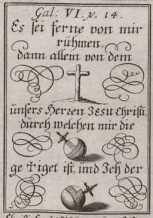 Gal: VI. v. 14.
Es sei ferne von mir
rühmen,
dann allein von dem
unsers Herren Jesu Christi,
durch welchen mir die
ge tziget ist, und Ich der